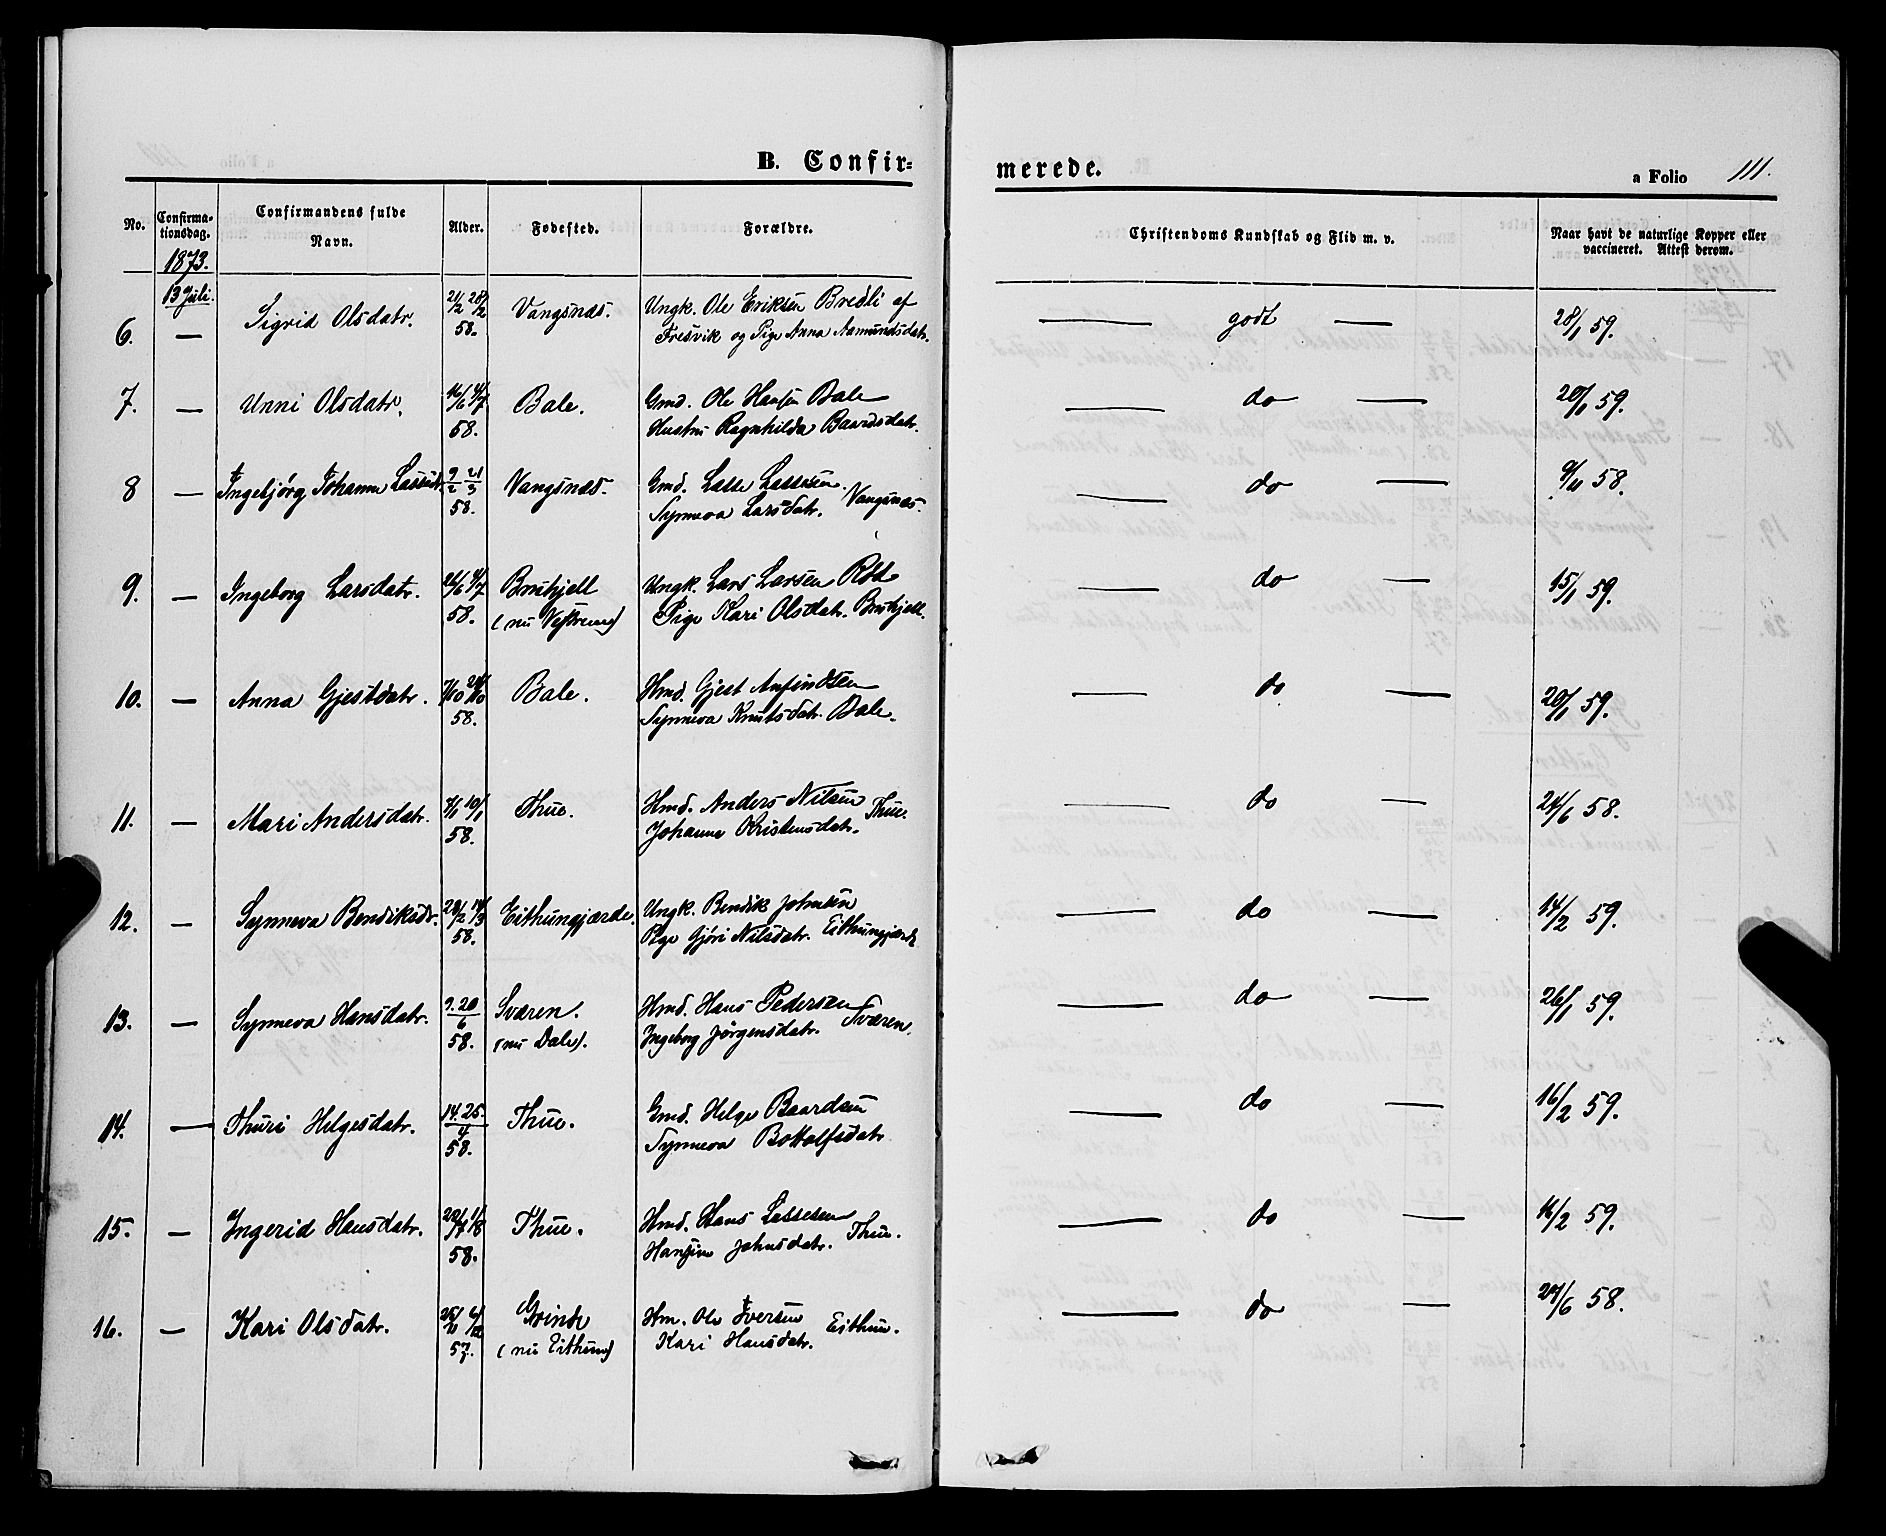 B. Confir=
merede.
a Folio 111.
No.
Confirma-
tionsdag.
Confirmandens fulde
Navn.
Alder.
Fødested.
Forældre.
Christendoms Kundskab og Flid m. v.
Naar havt de naturlige Kopper eller
vaccineret. Attest derom.
1873.
13 Juli.
6. — Sigrid Olsdatr. 21/2 28/2 58. Vangsnæs. Ungk. Ole Eriksen Bredli af
Fresvik og Pige Anna Aamundsdatr. — godt — 28/1 59.
7. — Unni Olsdatr. 16/6 4/7 58. Bale. Gmd. Ole Hansen Bale
Hustru Ragnhilda Baardsdatr. — do — 20/1 59.
8 — Ingebjørg Johanne Lassedr. 9/2 21/3 58. Vangsnæs. Gmd. Lasse Lassesen
Synneva Larsdatr. Vangsnæs. — do — 9/11 58.
9. — Ingeborg Larsdatr. 4/7 58. (nu Vestreim) Ungk. Lars Larsen
Pige Kari Olsdatr. — do — 15/1 59.
10. — Anna Gjestdatr. 58. Bale. Hmd. Gjest Anfindsen
Synneva Knutsdatr. Bale. — do — 20/1 59.
11. — Mari Andersdatr. 10/1 58. Thue. Hmd. Anders Nilsen
Johanne Kristensdatr. Thue. — do — 24/6 58.
12. — Synneva Bendiksdr. 14/3 58. Eithungjærde. Ungk. Bendik Johnsen
Pige Gjøri Nilsdatr. Eithungjærde — do — 14/2 59.
13. — Synneva Hansdatr. 9. 20/6 58. Sværen.
(nu Dale). Hmd. Hans Pedersen
Ingeborg Jørgensdatr. Sværen. — do — 26/1 59.
14. — Thuri Helgesdatr. 14. 25./4 58. Thue. Gmd. Helge Baardsen
Synneva Bottolfsdatr — do — 16/2 59.
15. — Ingerid Hansdatr. 58. Thue. Hmd. Hans Lassesen
Johnsdatr. Thue. — do — 16/2 59.
16. — Kari Olsdatr. 57. Grinde
(nu Eithun) Hm. Ole Iversen
Kari Hansdatr. Eithun. — do — 24/6 58.